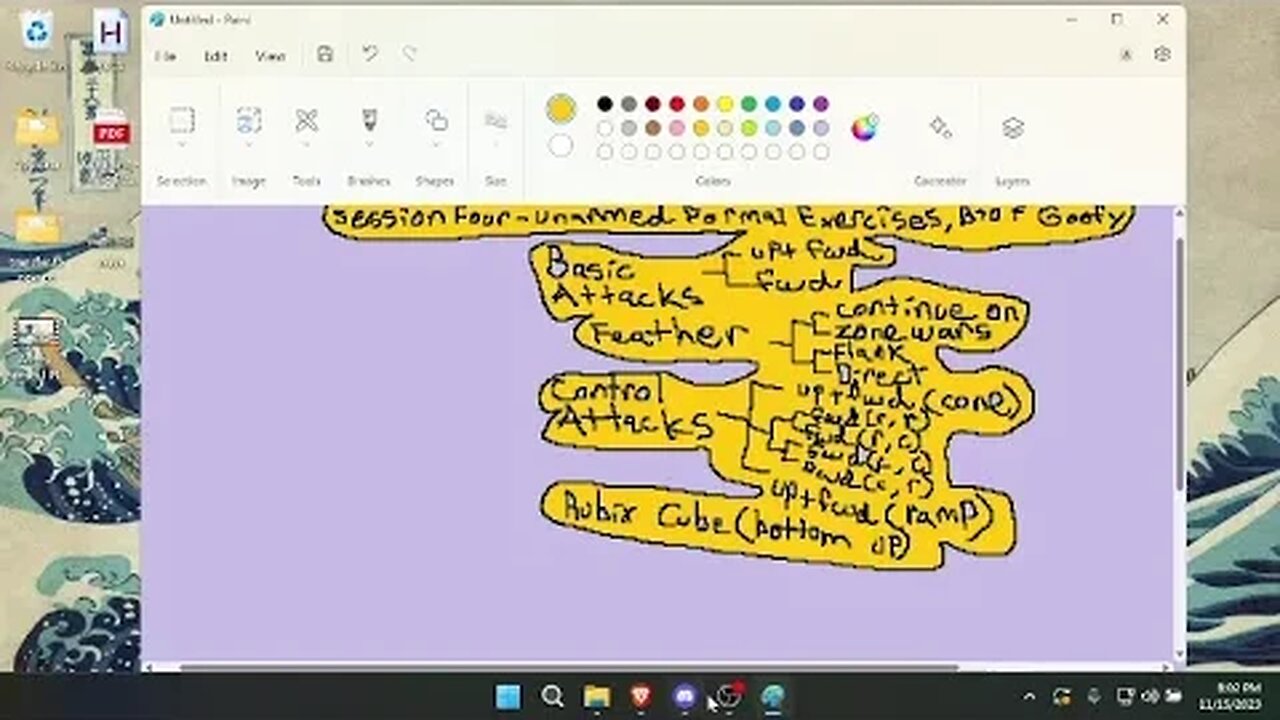 Untitled - Paint
File Edit View
PDF
Selection Image Tools Brushes Shapes Size Colors Cocreator Layers
Session Four - unarmed Formal Exercises, B to F Goofy
Basic Attacks
up + fwd
fwd
Feather
continue on
zone wars
Flack
Direct
Control Attacks
up + fwd (cone)
fwd (r, r)
fwd (r, c)
fwd (c, r)
up + fwd (ramp)
Rubix Cube (bottom up)
8:02 PM
11/15/2023